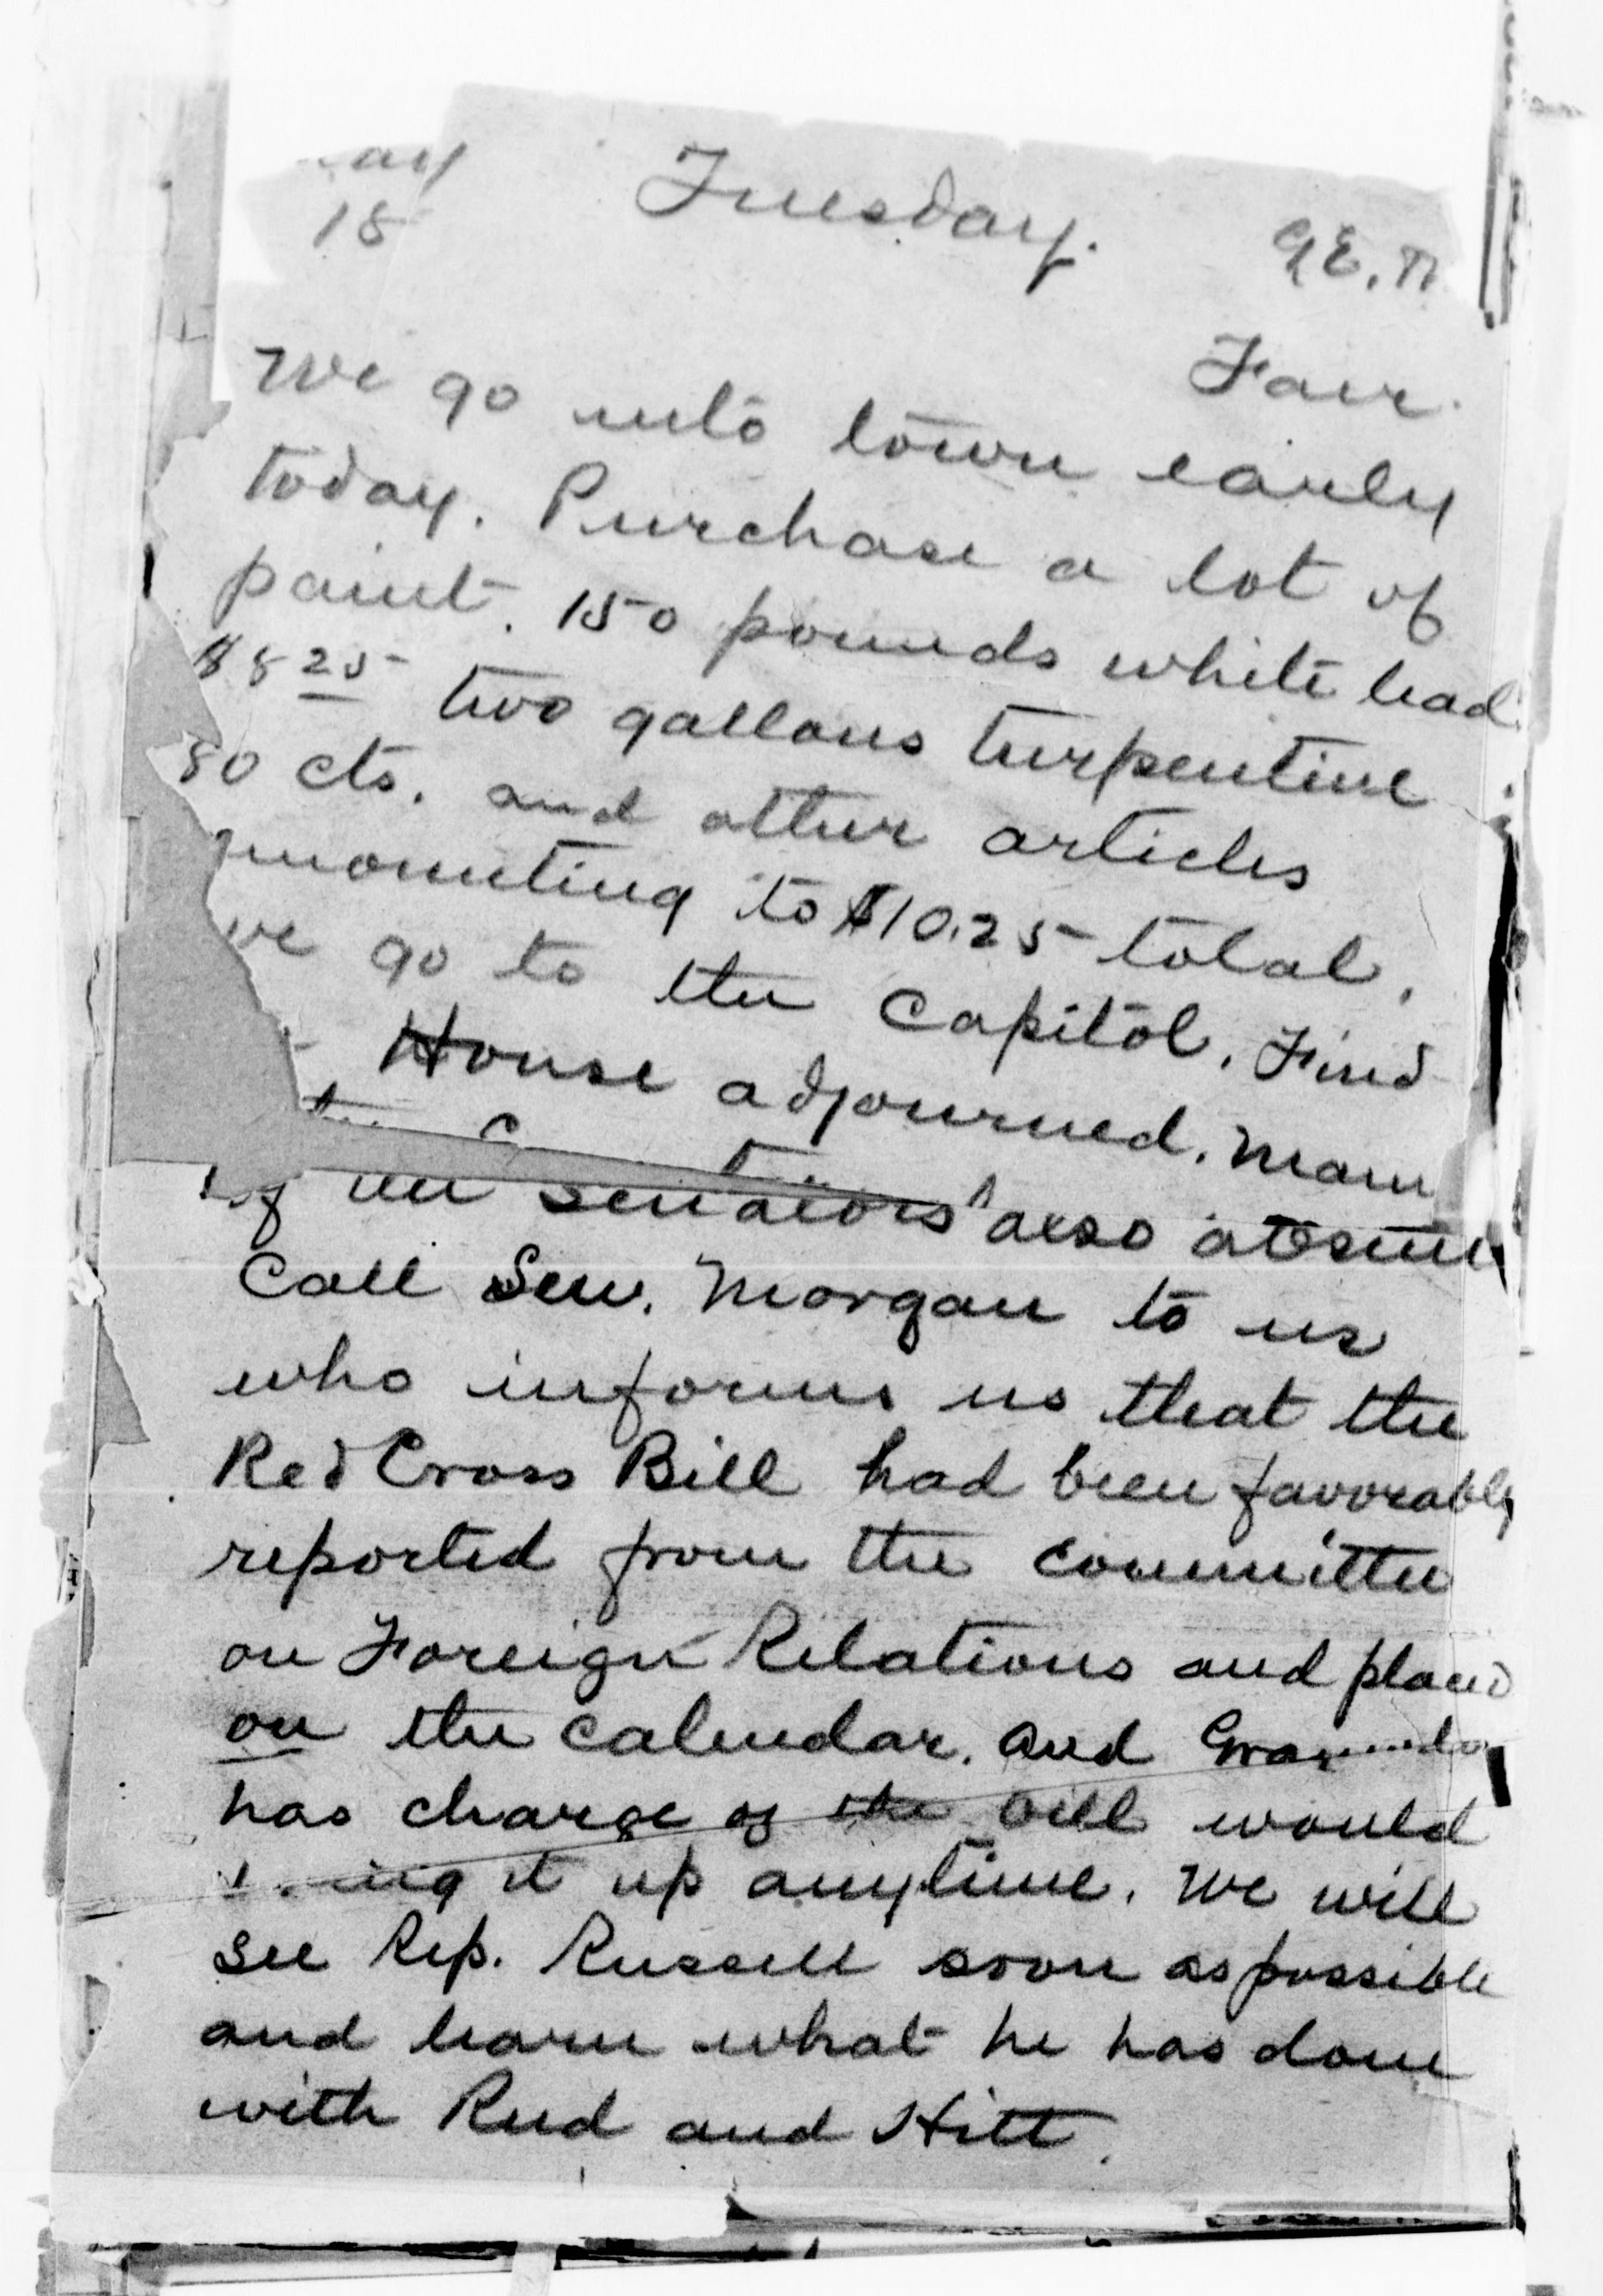 ay Tuesday. G.E.N.
18
Fair.
We go into town early
today. Purchase a lot of
paint. 150 pounds white lead
$8 25 two gallons turpentine
80 cts. and other articles
mounting to $10.25 total.
we go to the Capitol. Find
House adjourned. Man
of the Senators also absent
Call Sen. Morgan to us
who informs us that the
Red Cross Bill had been favorably
reported from the committee
on Foreign Relations and placed
on the calendar. and
has charge of the bill would
it up anytime. We will
see Rep. Russell soon as possible
and learn what he has done
with Reed and Hitt.